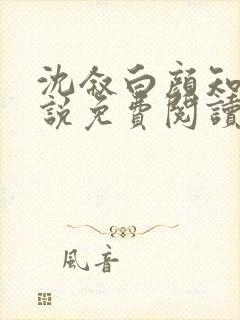 沈叙白顏知
說免費閱讀
風音